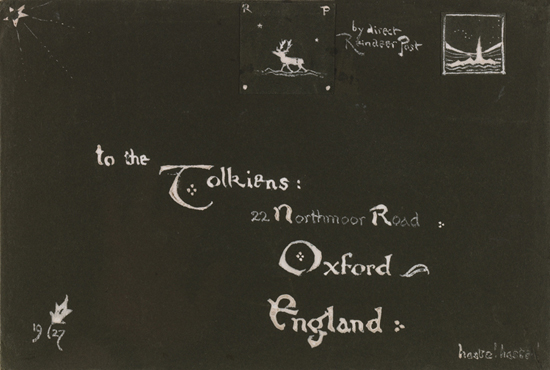 R P
by direct
Reindeer Post
to the
Tolkiens:
22 Northmoor Road
Oxford
England:
1927
haste! haste!